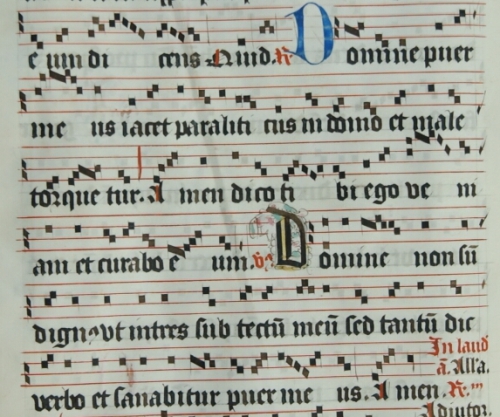 e um di cens Quid. R Domine puer
me us iacet paraliti cus in domo et male
torque tur. A men dico ti bi ego ve ni
am et curabo e um. v Domine non sū
dignꝰ vt intres sub tectū meū sed tantū dic
In laud
verbo et sanabitur puer me us. A men. R
ā. Alla.
Adiutor